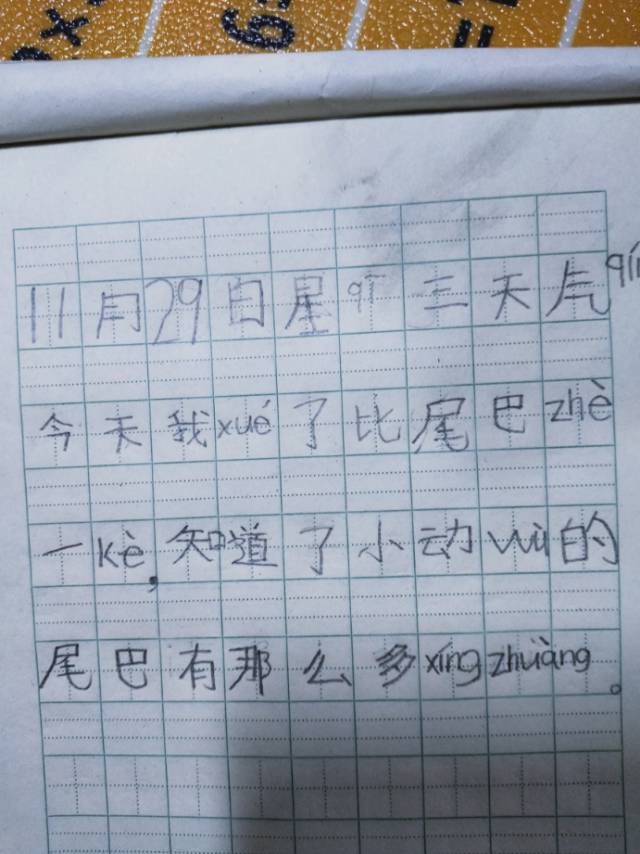 11月29日星qī三天气qíng
今天我xué了比尾巴zhè
一kè,知道了小动wù的
尾巴有那么多xíngzhuàng。